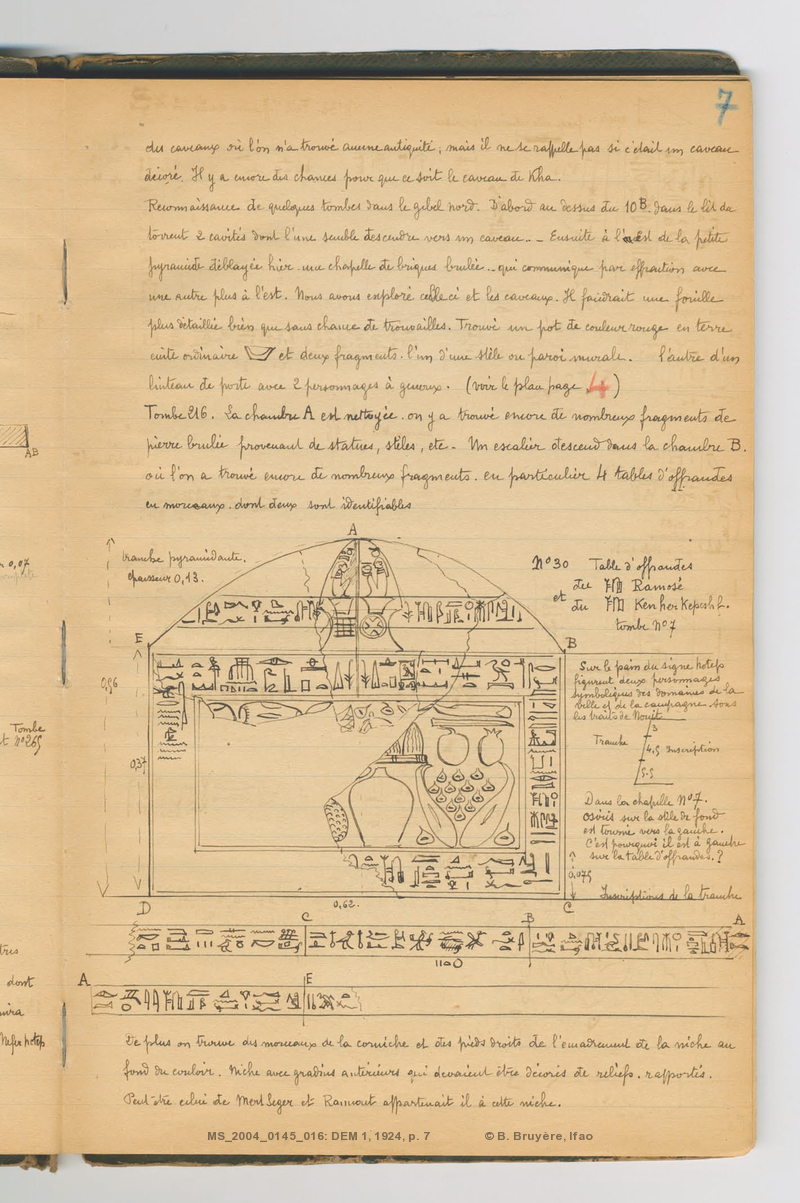 7
des caveaux où l'on n'a trouvé aucune antiquité ; mais il ne se rappelle pas si c'était un caveau
décoré. Il y a encore des chances pour que ce soit le caveau de Kha.
Reconnaissance de quelques tombes dans le gebel nord. D'abord au dessus du 10B. dans le lit du
torrent 2 cavités dont l'une semble descendre vers un caveau.. _ Ensuite à l'ouest de la petite
pyramide déblayée hier. une chapelle de briques brulée.. qui communique par effraction avec
une autre plus à l'est. Nous avons exploré celle ci et les caveaux. Il faudrait une fouille
plus détaillée bien que sans chance de trouvailles. Trouvé un pot de couleur rouge en terre
cuite ordinaire et deux fragments. l'un d'une stèle ou paroi murale. l'autre d'un
linteau de porte avec 2 personnages à genoux. (voir le plan page 4)
Tombe 216. La chambre A est nettoyée. on y a trouvé encore de nombreux fragments de
pierre brulée provenant de statues, stèles, etc. Un escalier descend dans la chambre B.
où l'on a trouvé encore de nombreux fragments. en particulier 4 tables d'offrandes
en morceaux. dont deux sont identifiables
A
tranche pyramidante.
épaisseur 0,13.
N° 30 Table d'offrandes
du Ramosé
et du Ken her Kepesh f.
tombe N° 7
E
B
0,96
0,37
Sur le pain du signe hotep
figurent deux personnages
symboliques des domaines de la
ville et de la campagne sous
les traits de Nouit
Tranche
3
4,5 Inscription
5.5
Dans la chapelle N° 7.
Osiris sur la stèle de fond
est tourné vers la gauche.
C'est pourquoi il est à gauche
sur la table d'offrandes. ?
0,075
Inscriptions de la tranche
D
0,62.
C
C
B
A
A
E
De plus on trouve des morceaux de la corniche et des pieds droits de l'encadrement de la niche au
fond du couloir. Niche avec gradins antérieurs qui devaient être décorés de reliefs. rapportés.
Peut être celui de Mert Seger et Rannout appartenait il à cette niche.
AB
0,07
Tombe
N° 265
dont
Neferhotep
MS_2004_0145_016: DEM 1, 1924, p. 7 © B. Bruyère, Ifao